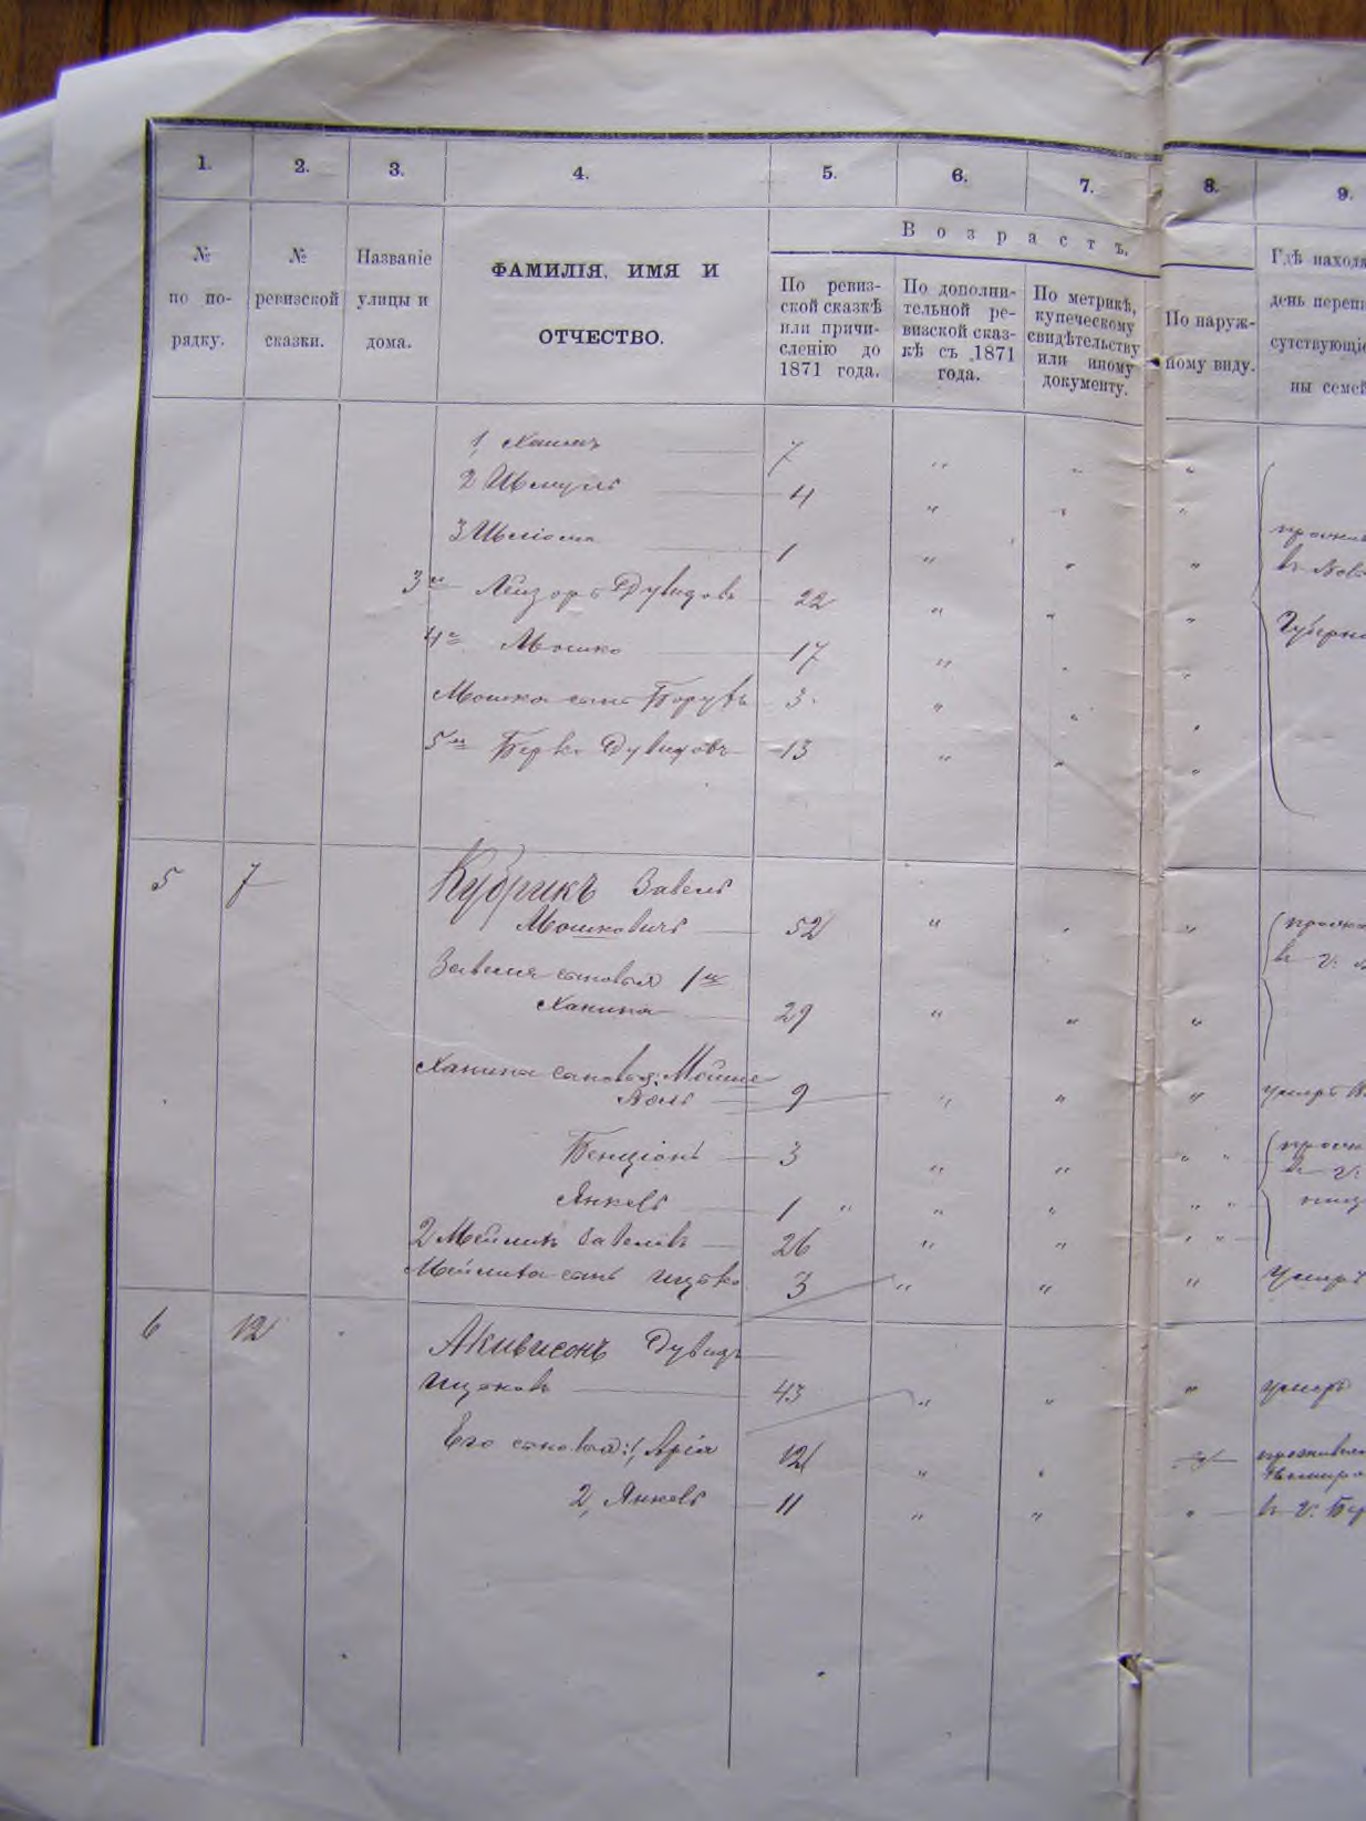 1. 2. 3. 4. 5. 6. 7. 8. 9.
№ по по- рядку.
№ ревизской сказки.
Названіе улицы и дома.
ФАМИЛІЯ, ИМЯ И
ОТЧЕСТВО.
Возрастъ.
По ревиз-
ской сказкѣ
или причи-
сленію до
1871 года.
По дополни-
тельной ре-
визской сказ-
кѣ съ 1871
года.
По метрикѣ,
купеческому
свидѣтельству
или иному
документу.
По наруж-
ному виду.
Гдѣ наход
день переп
сутствующі
ны семе
1, 7 " " "
2 Шмуль 4 " " "
3 Шліома 1 " " "
3й Лейзоръ Дувидовъ 22 " " "
4й Мошко 17 " " "
Мошка сынъ Борухъ 3 " " "
5й Берко Дувидовъ 13 " " "
в Нов
Губерн
5 7 Кубрикъ Завель
Мошковичъ 52 " " "
Завеля сыновья 1й
Ханина 29 " " "
Ханина сыновья: Мойше
9 " " " умеръ
Бенціонъ 3 " " " "
Янкель 1 " " " " "
2 Мейлихъ Завеловъ 26 " " " "
сынъ Ицько 3 " " " умеръ
6 12 Акивисонъ Дувидъ
Ицковъ 43 " " " умеръ
Его сыновья: 1, Арія 12 " "
2, Янкель 11 " " " в г. Бер